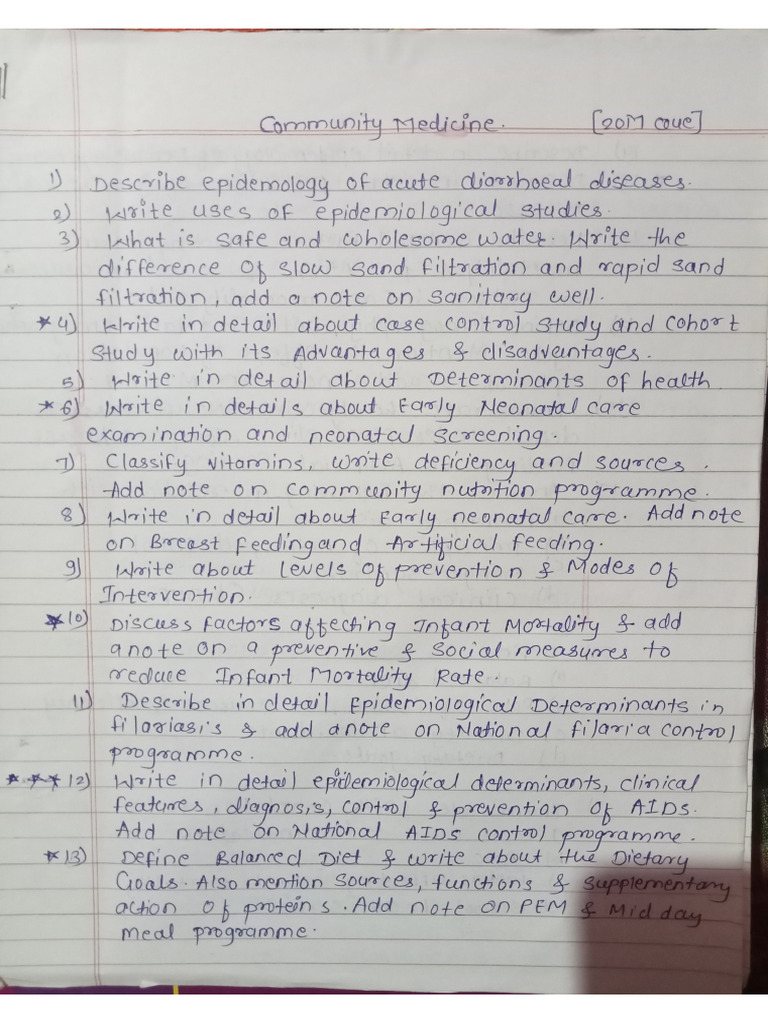 Community Medicine. [20M coue]
1) Describe epidemology of acute diarrhoeal diseases.
2) Write uses of epidemiological studies.
3) What is safe and wholesome water. Write the
difference of slow sand filtration and rapid sand
filtration, add a note on sanitary well.
*4) Write in detail about case control study and cohort
study with its Advantages & disadvantages.
5) Write in detail about Determinants of health
*6) Write in details about Early Neonatal care
examination and neonatal screening.
7) Classify vitamins, write deficiency and sources.
Add note on community nutrition programme.
8) Write in detail about Early neonatal care. Add note
on Breast feeding and Artificial feeding.
9) Write about levels of prevention & Modes of
Intervention.
*10) Discuss factors affecting Infant Mortality & add
a note on a preventive & social measures to
reduce Infant Mortality Rate.
11) Describe in detail Epidemiological Determinants in
filariasis & add a note on National filaria control
programme.
***12) Write in detail epidemiological determinants, clinical
features, diagnosis, control & prevention of AIDS.
Add note on National AIDS control programme.
*13) Define Balanced Diet & write about the Dietary
Goals. Also mention sources, functions & supplementary
action of proteins. Add note on PEM & Mid day
meal programme.